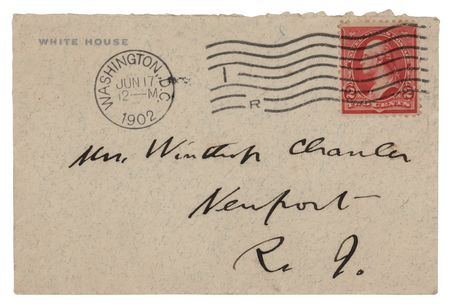 WHITE HOUSE
WASHINGTON, D.C.
JUN 17
12-M
1902
I
R
2 CENTS 2
Mrs. Winthrop Chanler
Newport
R. I.